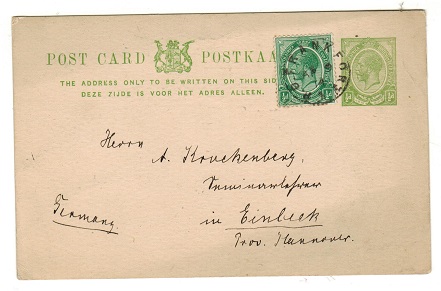 POST CARD POSTKAA
THE ADDRESS ONLY TO BE WRITTEN ON THIS SID
DEZE ZIJDE IS VOOR HET ADRES ALLEEN.
FRANKFORT
½d ½d
Herrn
A. Kruckenberg,
Seminarlehrer
in Einbeck
Prov. Hannover.
Germany.